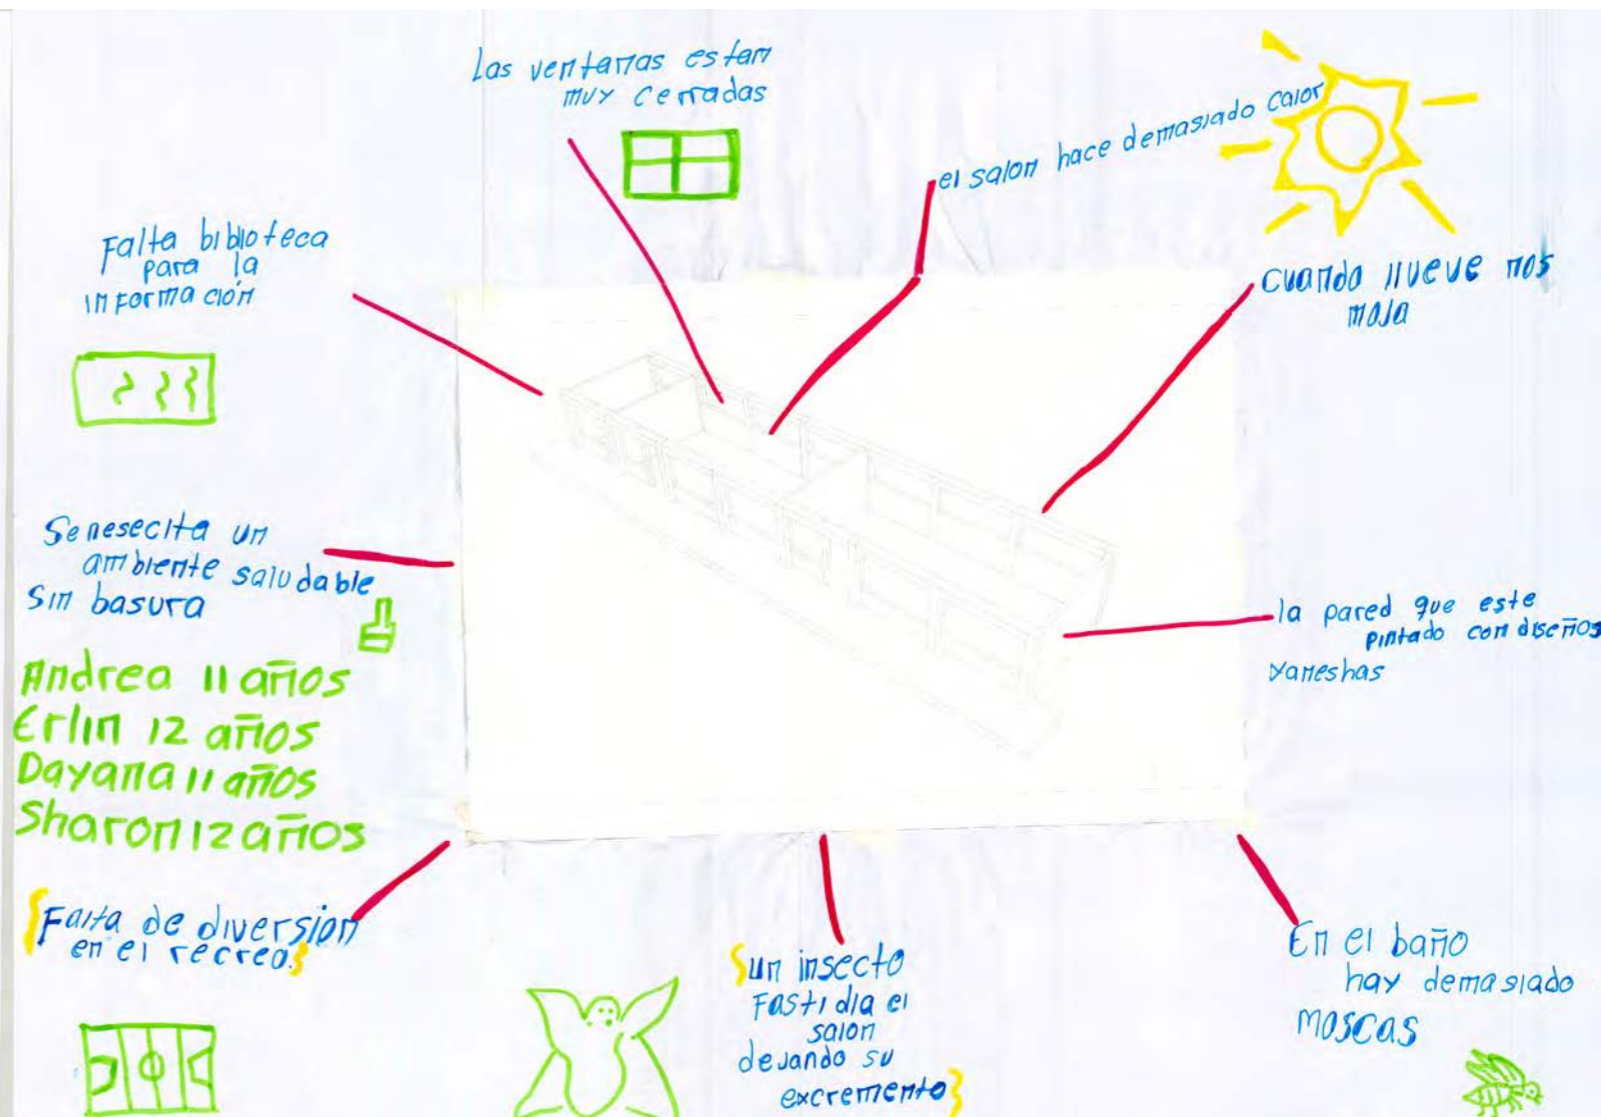 Las ventanas estan
muy cerradas
el salon hace demasiado calor
Falta biblioteca
para la
información
cuando llueve nos
moja
Se nesecita un
ambiente saludable
sin basura
la pared que este
pintado con diseños
yaneshas
Andrea 11 años
Erlin 12 años
Dayana 11 años
Sharon 12 años
Falta de diversion
en el recreo.
un insecto
Fastidia el
salon
dejando su
excremento
En el baño
hay demasiado
moscas